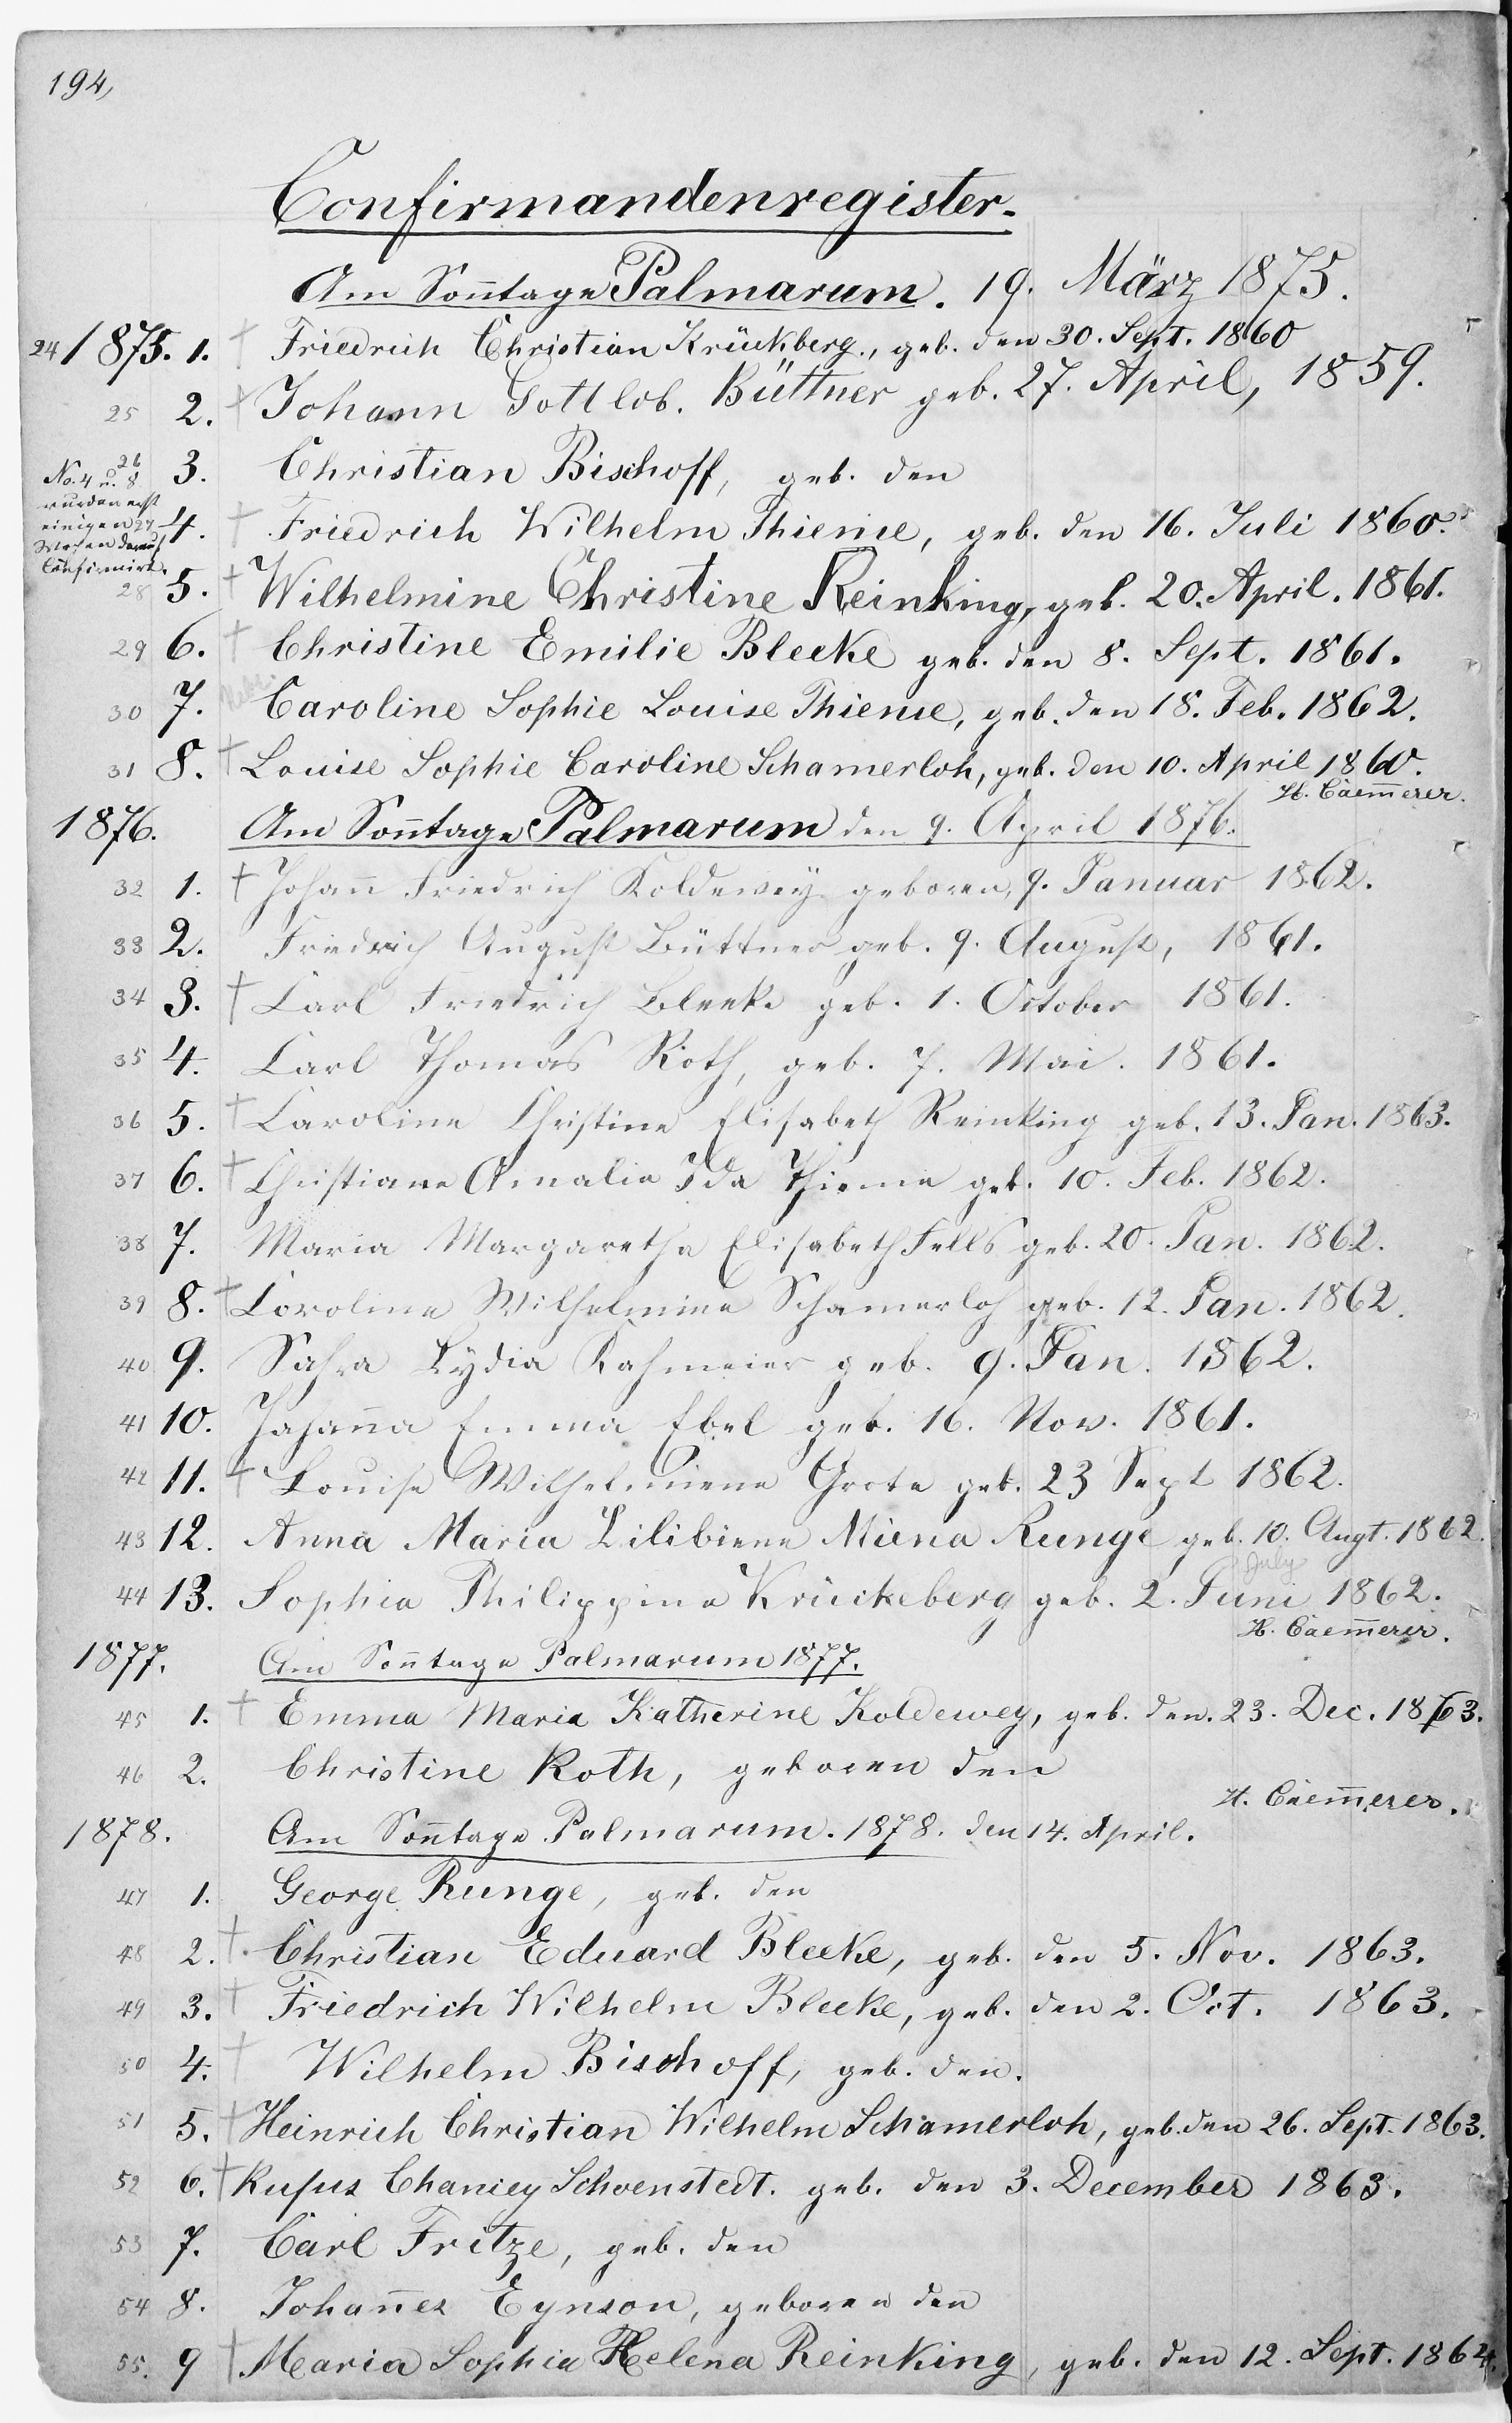 194,
Confirmandenregister.
Am Soñtage Palmarum. 19. März 1875.
24 1875. 1. † Friedrich Christian Krückberg., geb. den 30. Sept. 1860
25 2. † Johann Gottlob. Büttner geb. 27. April, 1859.
26 3. Christian Bischoff, geb. den
No. 4 u. 8
wurden erst
einigen
Wochen darauf
Confirmirt.
27 4. † Friedrich Wilhelm Thieme, geb. den 16. Juli 1860.
28 5. † Wilhelmine Christine Reinking, geb. 20. April. 1861.
29 6. † Christine Emilie Bleeke geb. den 8. Sept. 1861.
30 7. Caroline Sophie Louise Thieme, geb. den 18. Feb. 1862.
31 8. † Louise Sophie Caroline Schamerloh, geb. den 10. April 1860.
H. Caem̄erer.
1876. Am Soñtage Palmarum den 9. April 1876.
32 1. † Johañ Friedrich Koldewey geboren, 9. Januar 1862.
33 2. Friedrich August Büttner geb. 9. August, 1861.
34 3. † Carl Friedrich Bleeke geb. 1. October 1861.
35 4. Carl Thomas Roth, geb. 7. Mai. 1861.
36 5. † Caroline Christine Elisabeth Reinking geb. 13. Jan. 1863.
37 6. † Christiane Amalie Ida Thieme geb. 10. Feb. 1862.
38 7. Maria Margaretha Elisabeth Fells geb. 20. Jan. 1862.
39 8. † Caroline Wilhelmine Schamerloh geb. 12. Jan. 1862.
40 9. Sahra Lydia Kahmeier geb. 9. Jan. 1862.
41 10. Johaña Emma Ebel geb. 16. Nov. 1861.
42 11. † Louise Wilhelmiene Grote geb. 23 Sept 1862.
43 12. Anna Maria Lilibiene Miena Runge geb. 10. Augt. 1862.
July
44 13. Sophia Philippine Krückeberg geb. 2. Juni 1862.
H. Caem̄erer.
1877. Am Soñtage Palmarum 1877.
45 1. † Emma Maria Katherine Koldewey, geb. den. 23. Dec. 1863.
46 2. Christine Roth, geboren den
H. Caem̄erer.
1878. Am Soñtage Palmarum. 1878. den 14. April.
47 1. George Runge, geb. den
48 2. † Christian Eduard Bleeke, geb. den 5. Nov. 1863.
49 3. † Friedrich Wilhelm Bleeke, geb. den 2. Oct. 1863.
50 4. † Wilhelm Bischoff, geb. den.
51 5. † Heinrich Christian Wilhelm Schamerloh, geb. den 26. Sept. 1863.
52 6. † Rufus Chaniey Schoenstedt. geb. den 3. December 1863.
53 7. Carl Fritze, geb. den
54 8. Johañes Eynson, geboren den
55. 9 † Maria Sophia Helena Reinking, geb. den 12. Sept. 1864.